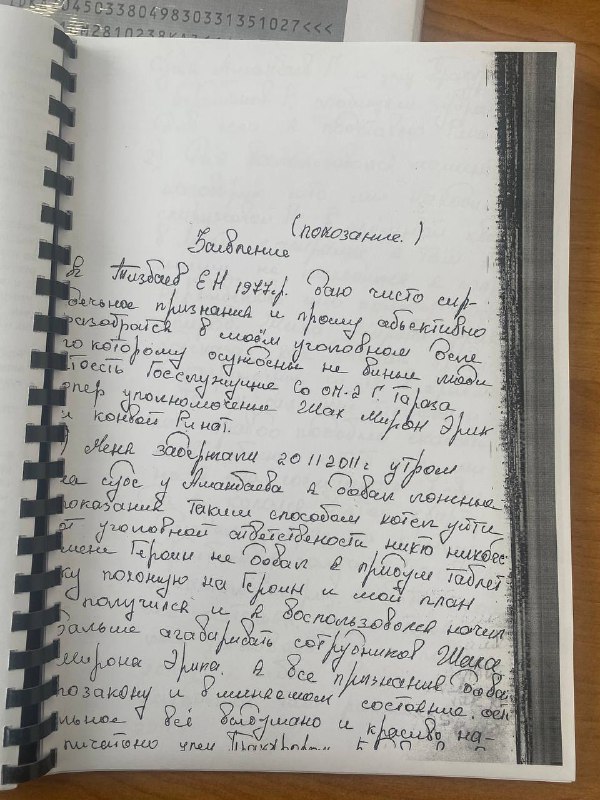 0450338049830331351027<<<
(похозание.)
Заевление
Тизбаев ЕН 1977.г. даю чисто сер-
дечьное признания и прошу обьективно
разобратся в моём уголовном деле
го которому осуждены не виные люди
тоесть Госслужущие Со ОП-2 Г. Тараза
опер уполномочение Шак Мирон Эрик
и конвой Ринат.
) Меня задержали 20 11 2011г утром
на суде у Амантаева я давал ложные
показания таким способом хотел уйти
от уголовной атветствености никто никовс
мене Героин не давал я придум таблет
ку похожую на Героин и мой план
получился и я воспользовался начил
дальше агаваривать сотрудников Шака
Мирона Эрика. А все признания давал
позакону и вминяемом состояние. ост
льное всё выдумано и красиво на-
пичатоно